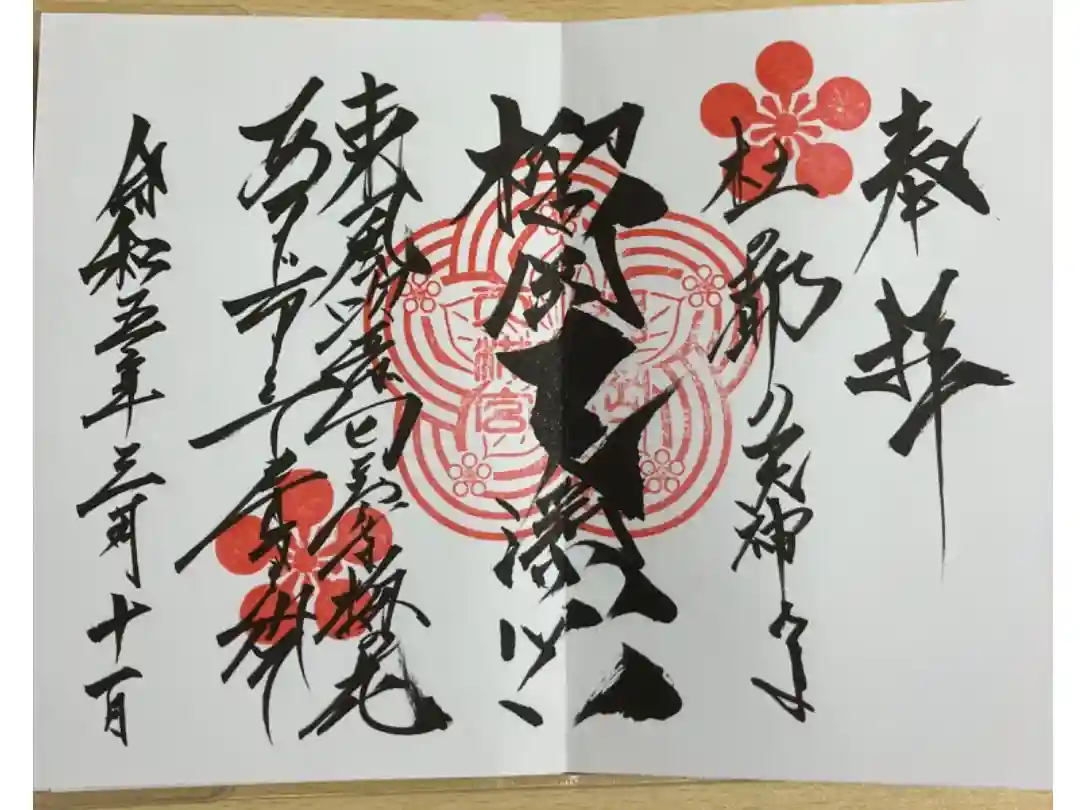 奉拝
杜の都の天神さま
榴岡天満宮
東風吹かば匂ひおこせよ梅の花
あるじなしとて春
令和五年三月十一日